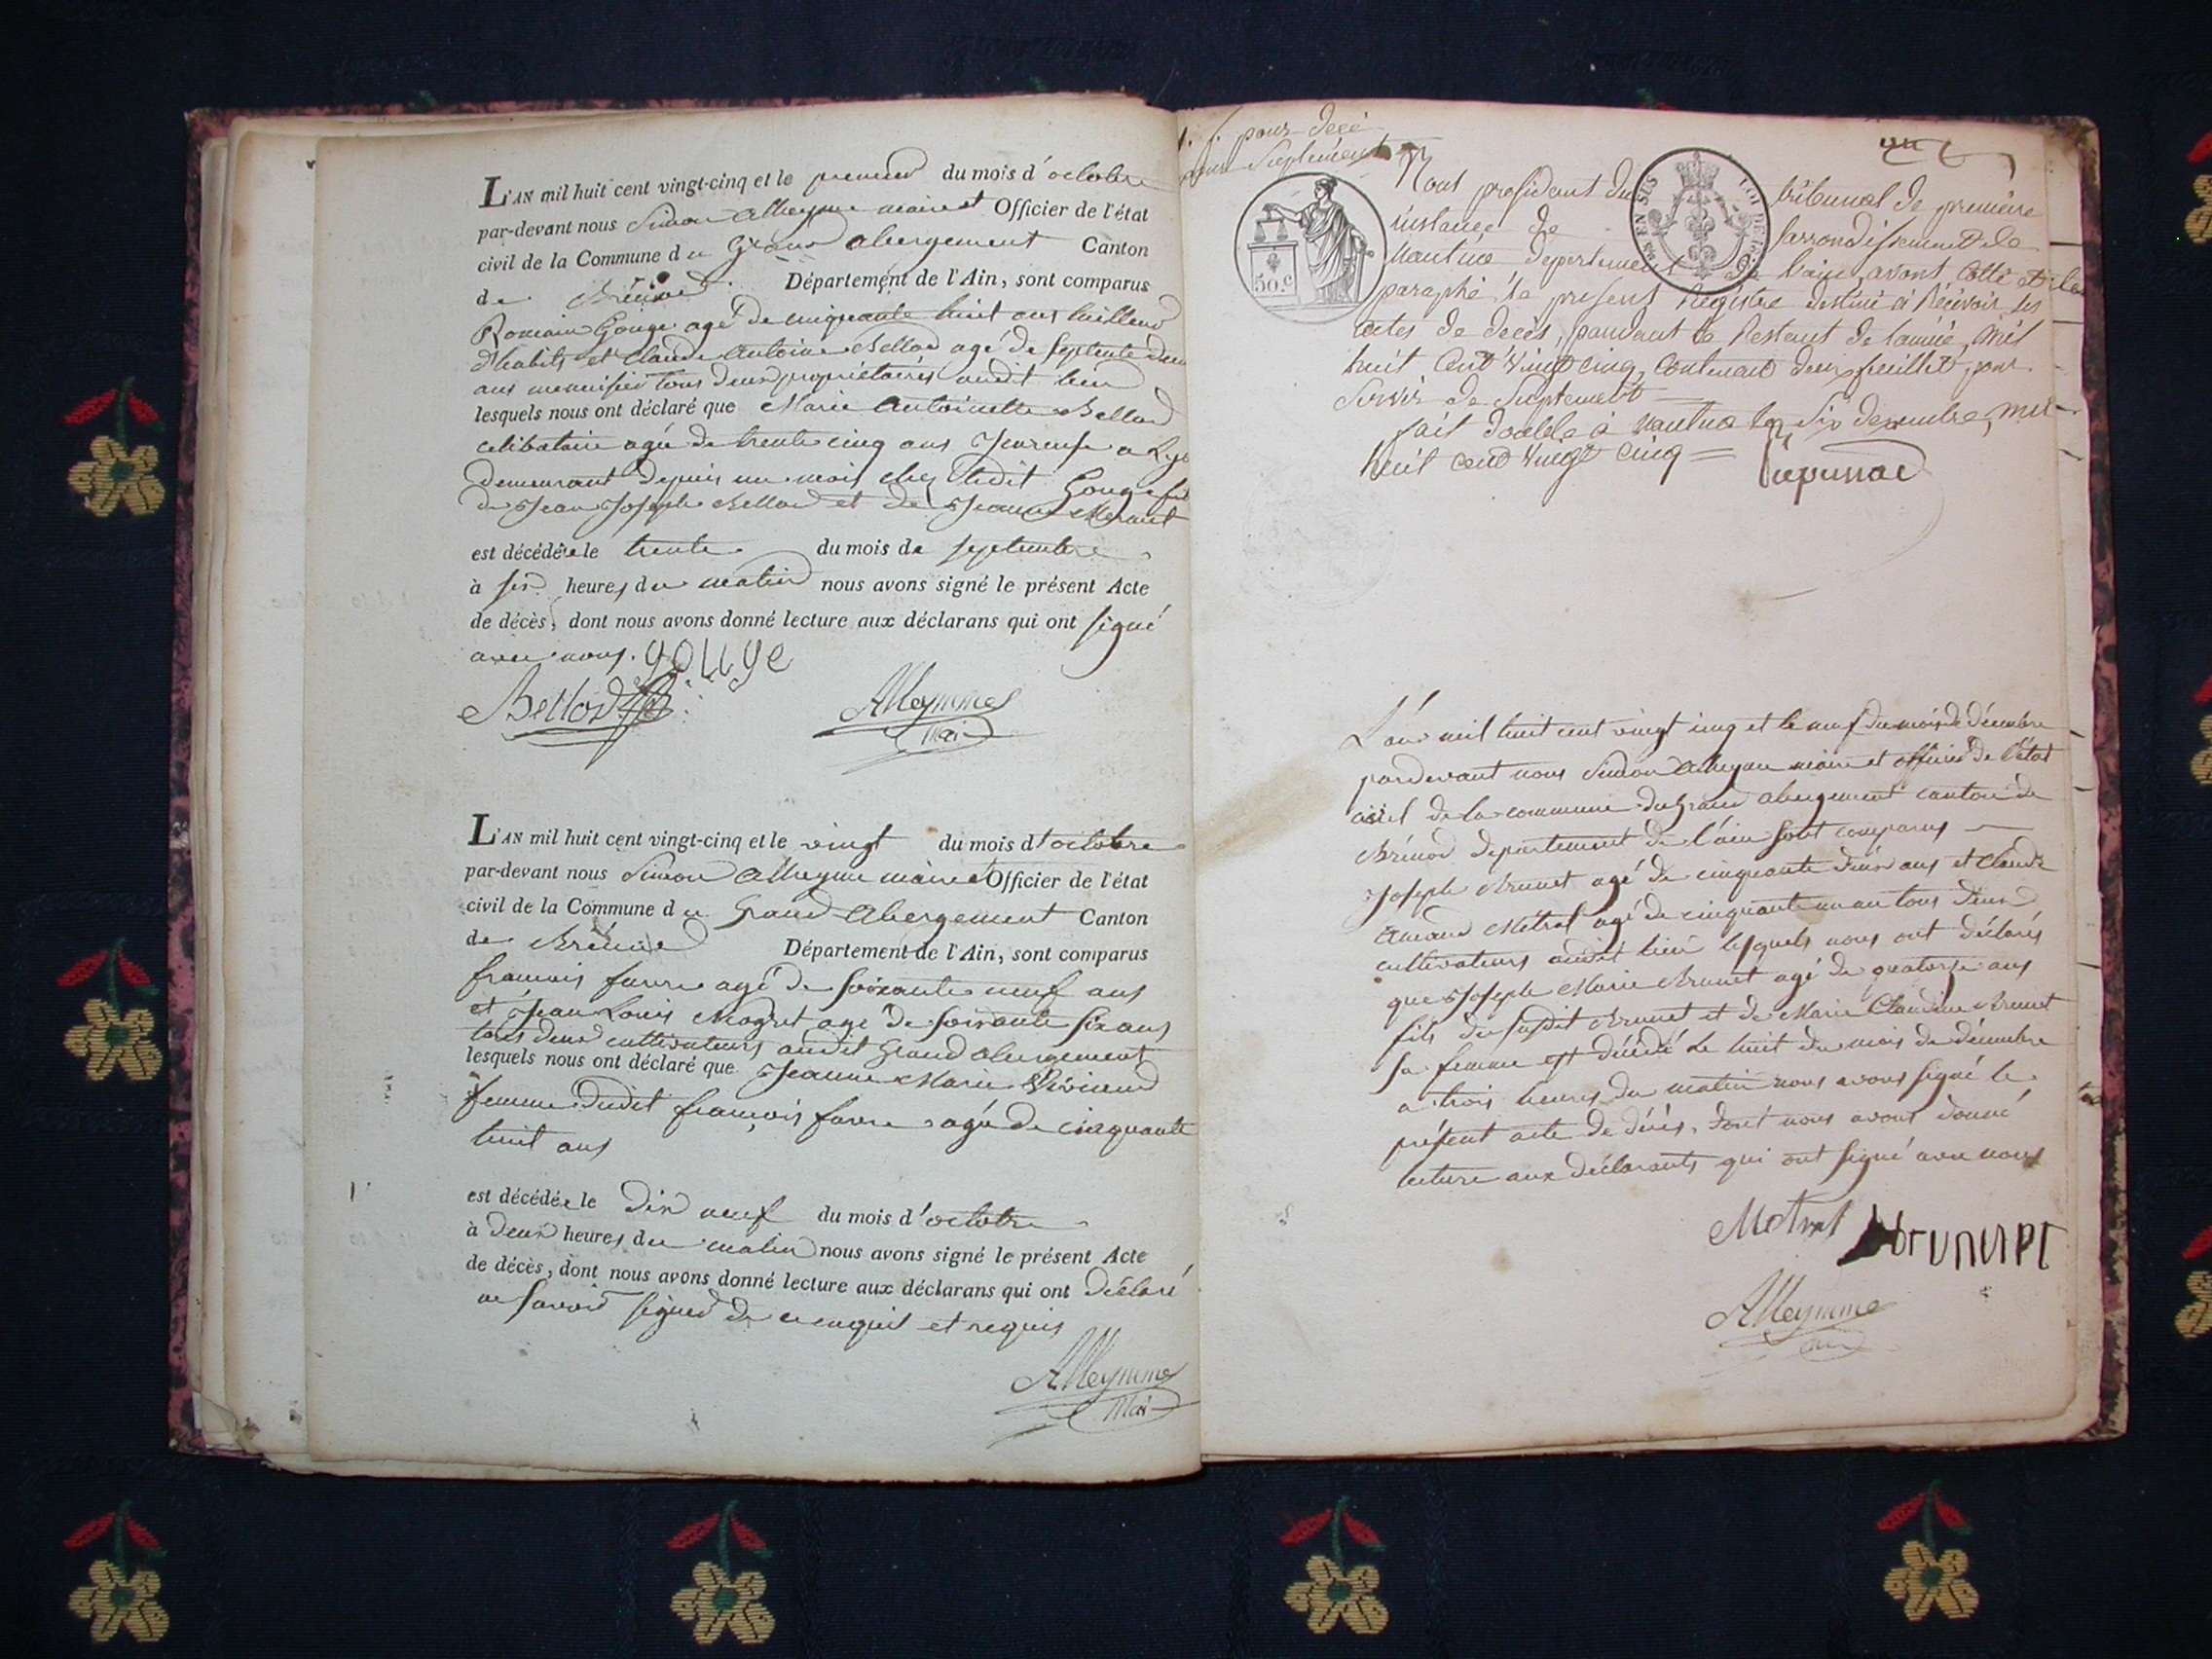 L'AN mil huit cent vingt-cinq et le premier du mois d'octobre
par-devant nous Simon Alleyme maire et Officier de l'état
civil de la Commune du Grand abergement Canton
de Brénod Département de l'Ain, sont comparus
Romain Gouge agé de cinquante huit ans tailleur
d'habits et Claude Antoine Bellod agé de septente deux
ans menuisier tous deux propriétaires audit lieu
lesquels nous ont déclaré que Marie Antoinette Bellod
celibataire agée de trente cinq ans
demeurant depuis un mois chez ledit Gouge
de Jean Joseph Bellod et de Jeanne
est décédée le trente du mois de septembre
à six heures du matin nous avons signé le présent Acte
de décès, dont nous avons donné lecture aux déclarans qui ont signé
avec nous. gouge
Bellod Alleymme
Mai
L'AN mil huit cent vingt-cinq et le vingt du mois d'octobre
par-devant nous Simon Alleyme maire et Officier de l'état
civil de la Commune du Grand Abergement Canton
de Brénod Département de l'Ain, sont comparus
francois favre agé de soixante neuf ans
et Jean Louis agé de soixante six ans
tous deux cultivateurs audit Grand abergement
lesquels nous ont déclaré que Jeanne Marie
femme dudit françois favre agée de cinquante
huit ans
est décédée le dix neuf du mois d'octobre
à deux heures du matin nous avons signé le présent Acte
de décès, dont nous avons donné lecture aux déclarans qui ont déclaré
ne savoir signer de ce enquis et requis
Alleymme
Mai
pour decé
Suplément
Nous président du tribunal de première
instance de larrondissement de
nantua departement de lain, avons cotté et
paraphé le present Registre destiné à Recevoir les
actes de decès, pendant le Restant de lannée mil
huit cent vingt cinq, contenant deux feuillet, pour
Servir de Suplement
fait double à nantua le six decembre, mil
huit cent vingt cinq
50.C
L'an mil huit cent vingt cinq et le neuf du mois de décembre
pardevant nous Simon Alleyme maire et officier de l'état
civil de la commune du Grand abergement canton de
Brénod departement de l'ain sont comparus
Joseph Brunet agé de cinquante deux ans et Claude
Amand Métral agé de cinquante un an tous deux
cultivateurs audit lieu lesquels nous ont déclarés
que Joseph Marie Brunet agé de quatorze ans
fils du susdit Brunet et de Marie Claudine Brunet
sa femme est décédé le huit du mois de décembre
a trois heures du matin nous avons signé le
présent acte de décès, dont nous avons donné
lecture aux déclarants qui ont signé avec nous
Metral brunet
Alleymme